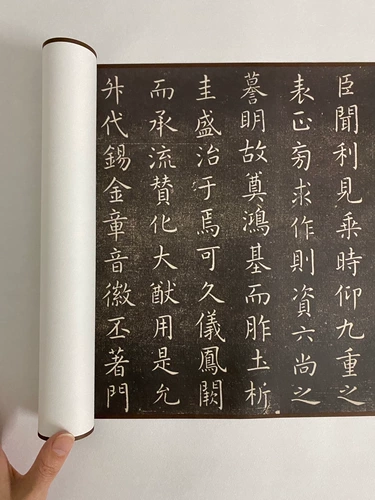 臣聞利見乗時仰九重之
表正旁求作則資六尚之
謩明故奠鴻基而胙土析
圭盛治于焉可久儀鳳闕
而承流賛化大猷用是允
升代錫金章音徽丕著門